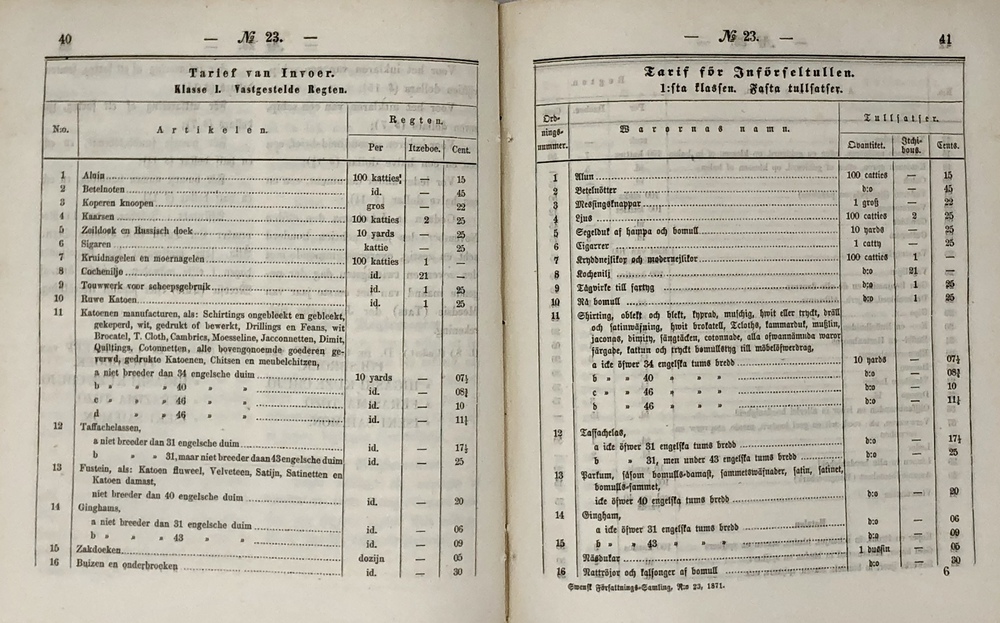 40 — № 23. —
Tarief van Invoer.
Klasse I. Vastgestelde Regten.
N:o. Artikelen. Regten.
Per Itzeboe. Cent.
1 Aluin 100 katties — 15
2 Betelnoten id. — 45
3 Koperen knoopen gros — 22
4 Kaarsen 100 katties 2 25
5 Zeildoek en Russisch doek 10 yards — 25
6 Sigaren kattie — 25
7 Kruidnagelen en moernagelen 100 katties 1 —
8 Cochenilje id. 21 —
9 Touwwerk voor scheepsgebruik id. 1 25
10 Ruwe Katoen id. 1 25
11 Katoenen manufacturen, als: Schirtings ongebleekt en gebleekt,
gekeperd, wit, gedrukt of bewerkt, Drillings en Feans, wit
Brocatel, T. Cloth, Cambrics, Moesseline, Jacconnetten, Dimit,
Quiltings, Cotonnetten, alle bovengenoemde goederen ge-
verwd, gedrukte Katoenen, Chitsen en meubelchitzen,
a niet breeder dan 34 engelsche duim 10 yards — 07½
b » » » 40 » » id. — 08¾
c » » » 46 » » id. — 10
d » » » 46 » » id. — 11¼
12 Taffachelassen,
a niet breeder dan 31 engelsche duim id. — 17½
b » » 31, maar niet breeder daan 43 engelsche duim id. — 25
13 Fustein, als: Katoen fluweel, Velveteen, Satijn, Satinetten en
Katoen damast,
niet breeder dan 40 engelsche duim id. — 20
14 Ginghams,
a niet breeder dan 31 engelsche duim id. — 06
b » » » 43 » » id. — 09
15 Zakdoeken dozijn — 05
16 Buizen en onderbroeken id. — 30
— № 23. — 41
Tarif för Införseltullen.
1:sta klassen. Fasta tullsatser.
Ord-
nings-
nummer. Warornas namn. Tullsatser.
Qvantitet. Itchi-
bous. Cents.
1 Alun 100 catties — 15
2 Betelnötter d:o — 45
3 Messingsknappar 1 gross — 22
4 Ljus 100 catties 2 25
5 Segelduk af hampa och bomull 10 yards — 25
6 Cigarrer 1 catty — 25
7 Kryddnejlikor och modernejlikor 100 catties 1 —
8 Kochenilj d:o 21 —
9 Tågvirke till fartyg d:o 1 25
10 Rå bomull d:o 1 25
11 Shirting, oblekt och blekt, kyprad, muschig, hwit eller tryckt, dräll
och satinwäfning, hwit brokatell, Tcloths, kammarduk, muslin,
jaconas, dimity, sängtäcken, cotonnade, alla ofwannämnda waror
färgade, kattun och tryckt bomullstyg till möbelöfwerdrag,
a icke öfwer 34 engelska tums bredd 10 yards — 07½
b » » 40 » » » d:o — 08¾
c » » 46 » » » d:o — 10
b » 46 » » » d:o — 11¼
12 Taffachelas,
a icke öfwer 31 engelska tums bredd d:o — 17½
b » 31, men under 43 engelska tums bredd d:o — 25
13 Parkum, såsom bomulls-damast, sammetswäfnader, satin, satinet,
bomulls-sammet,
icke öfwer 40 engelska tums bredd d:o — 20
14 Gingham,
a icke öfwer 31 engelska tums bredd d:o — 06
b » » 43 » » » d:o — 09
15 Näsdukar 1 dussin — 05
16 Nattröjor och kalsonger af bomull d:o — 30
Swensk Författnings-Samling, N:o 23, 1871. 6